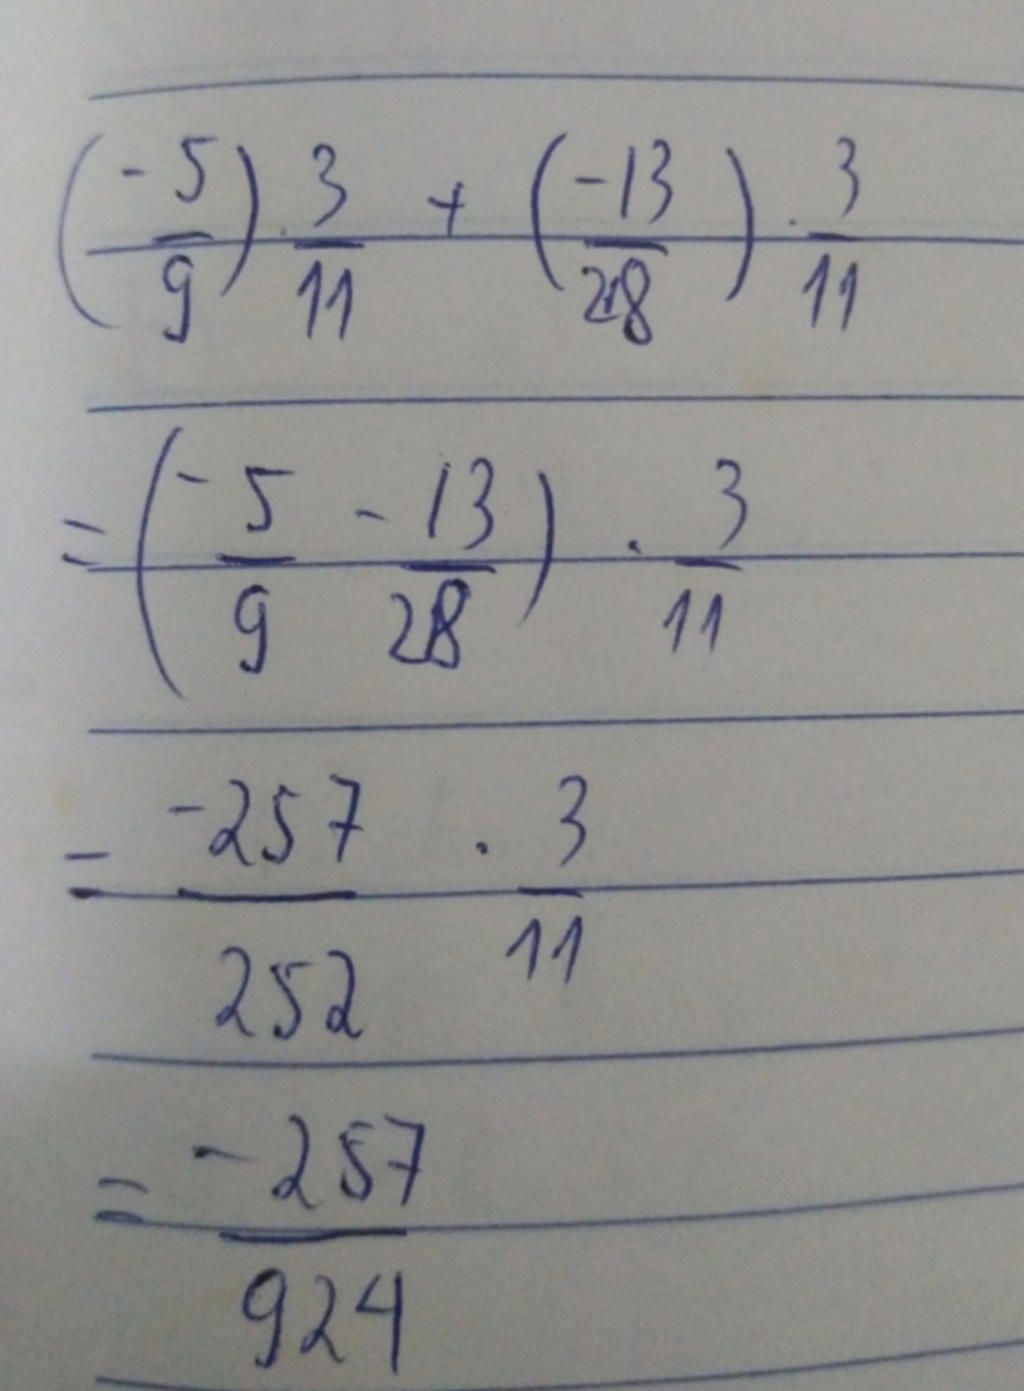 (-5/9) . 3/11 + (-13/28) . 3/11
= (-5/9 - 13/28) . 3/11
= -257/252 . 3/11
= -257/924